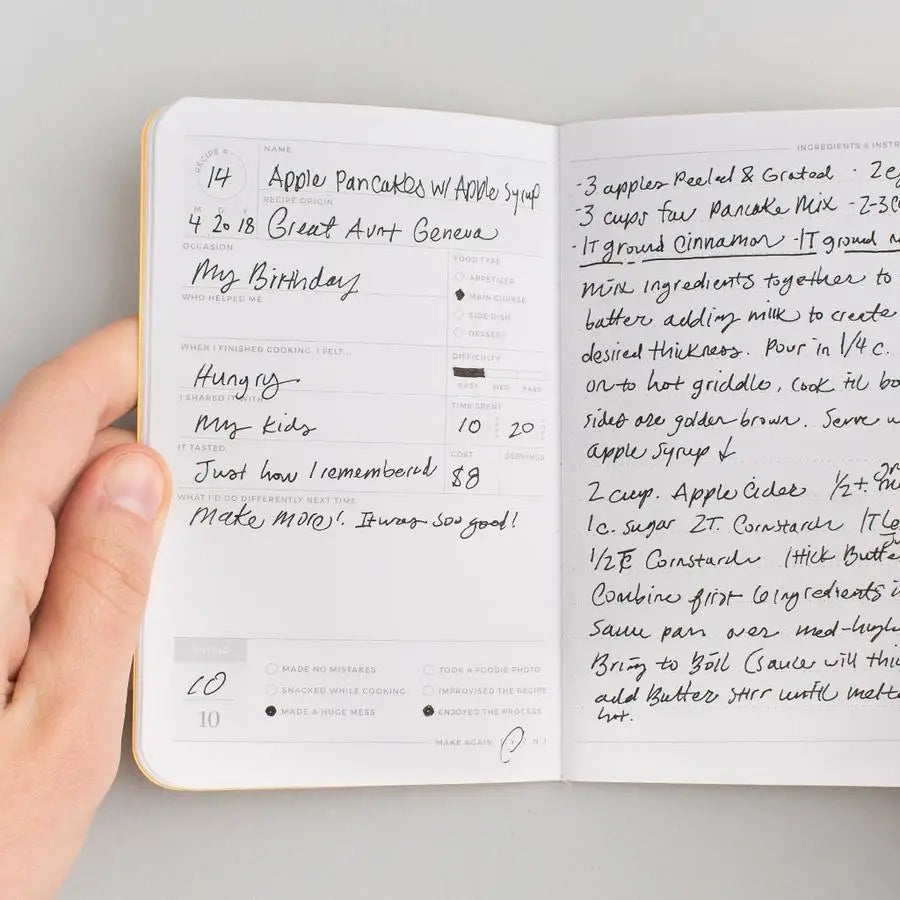 RECIPE #
14
NAME
Apple Pancakes w/ Apple Syrup
M D Y
4 20 18
RECIPE ORIGIN
Great Aunt Geneva
OCCASION
My Birthday
FOOD TYPE
APPETIZER
MAIN COURSE
SIDE DISH
DESSERT
WHO HELPED ME
WHEN I FINISHED COOKING, I FELT...
Hungry.
DIFFICULTY
EASY MED HARD
I SHARED IT WITH
My kids
TIME SPENT
10 20
IT TASTED
Just how I remembered
COST
$8
SERVINGS
WHAT I'D DO DIFFERENTLY NEXT TIME
Make more! It was soo good!
RATING
10
10
MADE NO MISTAKES
TOOK A FOODIE PHOTO
SNACKED WHILE COOKING
IMPROVISED THE RECIPE
MADE A HUGE MESS
ENJOYED THE PROCESS
MAKE AGAIN (Y / N)
INGREDIENTS & INSTR
-3 apples Peeled & Grated · 2e
-3 cups fav Pancake Mix -2-3c
-1T ground Cinnamon -1T ground
mix ingredients together to
batter adding milk to create
desired thickness. Pour in 1/4 c.
on to hot griddle, cook til bo
sides are golden brown. Serve w
apple syrup ↓
2 cup. Apple Cider 1/2 t.
1c. sugar 2T. Cornstarch 1T Le
1/2 Cornstarch 1 thick Butte
Combine first 6 ingredients i
Sauce pan over med-high
Bring to Boil (sauce will thi
add Butter stir until melt
hot.